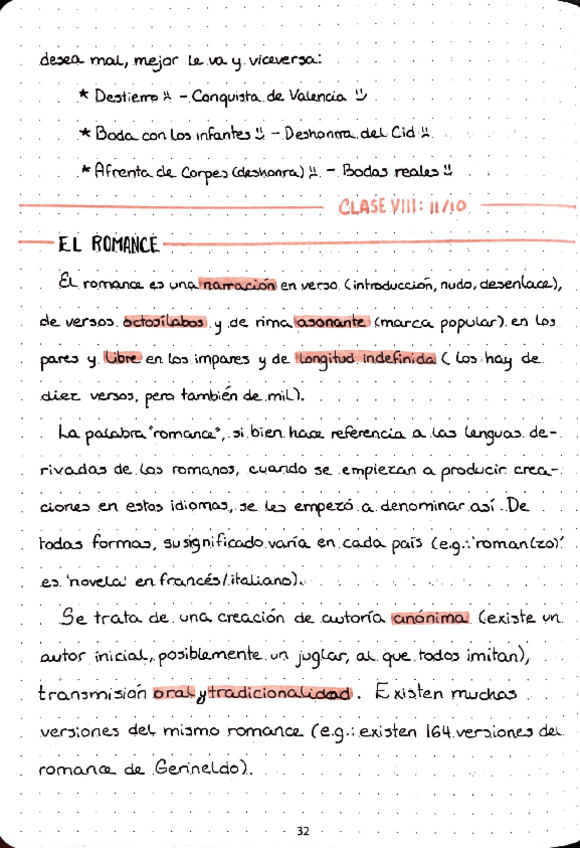 desea mal, mejor le va y viceversa:
* Destierro :( - Conquista de Valencia :)
* Boda con los infantes :) - Deshonra del Cid :(
* Afrenta de Corpes (deshonra) :( - Bodas reales :)
CLASE VIII: 11/10
EL ROMANCE
El romance es una narración en verso (introducción, nudo, desenlace),
de versos octosílabos y de rima asonante (marca popular) en los
pares y libre en los impares y de longitud indefinida (los hay de
diez versos, pero también de mil).
La palabra "romance", si bien hace referencia a las lenguas de-
rivadas de los romanos, cuando se empiezan a producir crea-
ciones en estos idiomas, se les empezó a denominar así. De
todas formas, su significado varía en cada país (e.g.: 'roman(zo)'
es 'novela' en francés/italiano).
Se trata de una creación de autoría anónima (existe un
autor inicial, posiblemente un juglar, al que todos imitan),
transmisión oral y tradicionalidad. Existen muchas
versiones del mismo romance (e.g.: existen 164 versiones del
romance de Gerineldo).
32